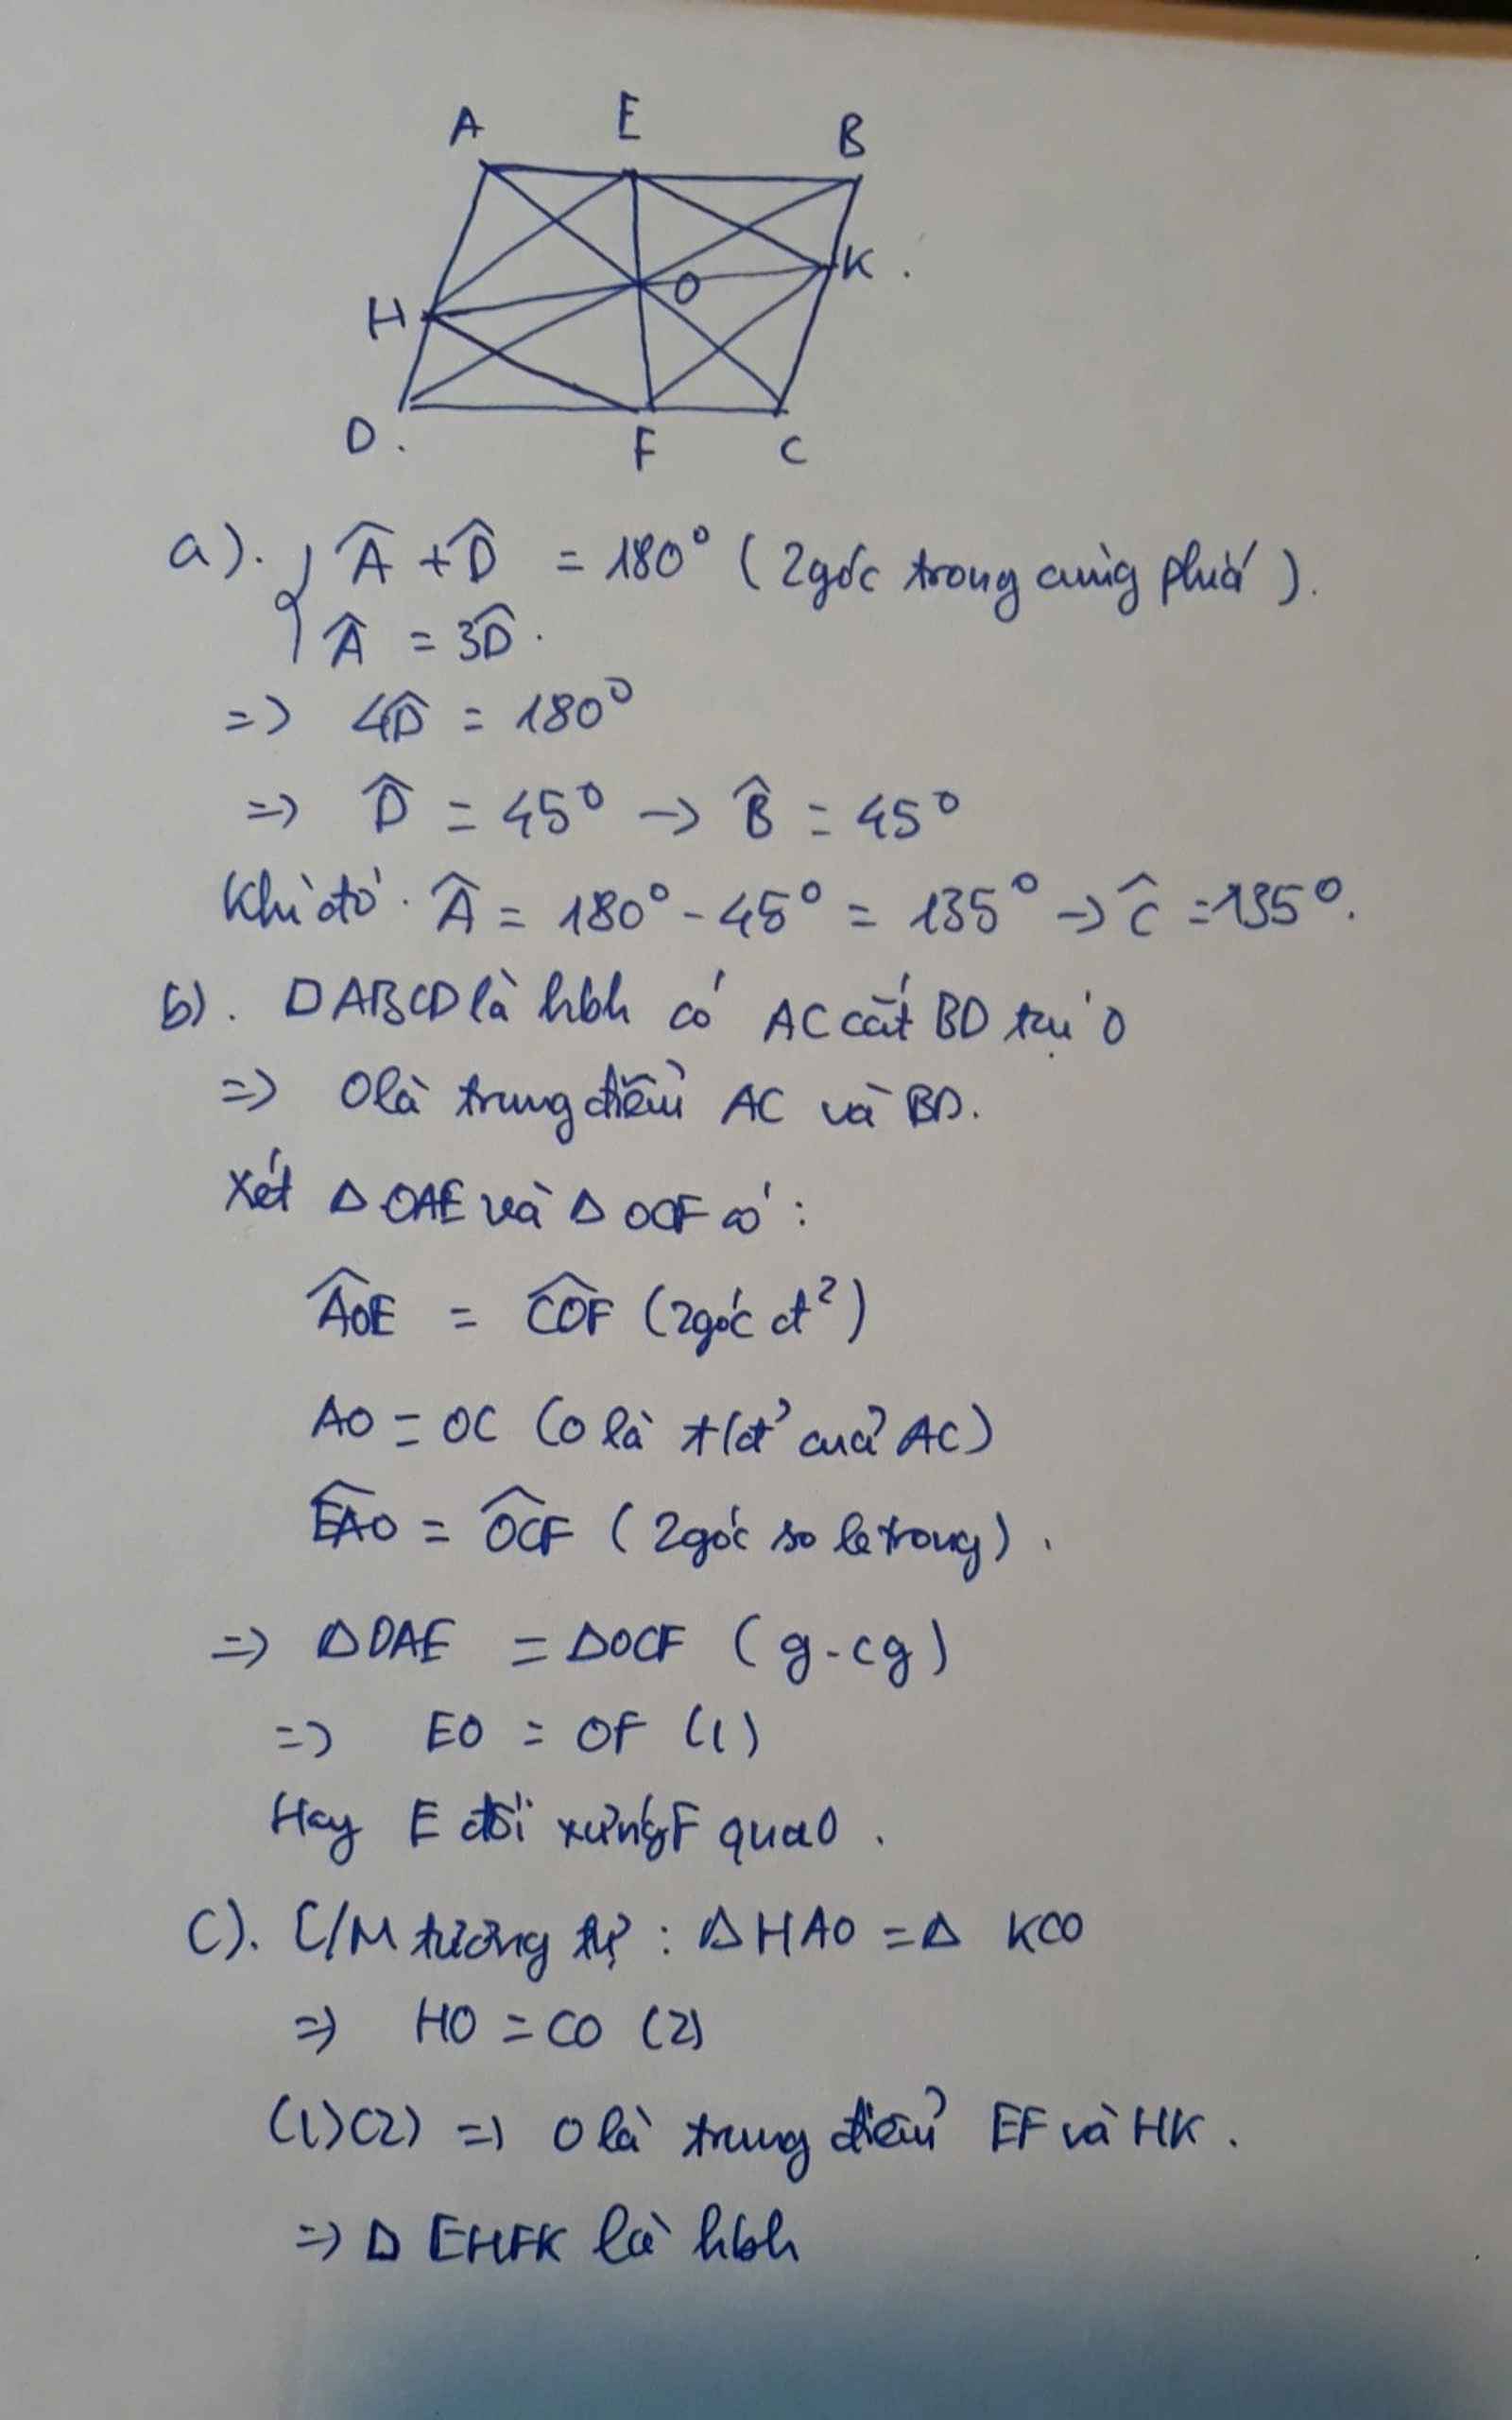 A E B
H O K .
D . F C
a). { Â + D̂ = 180° ( 2góc trong cùng phía ).
Â = 3D̂ .
=> 4D̂ = 180°
=> D̂ = 45° -> B̂ = 45°
Khi đó . Â = 180° - 45° = 135° -> Ĉ = 135°.
b). □ ABCD là hbh có AC cắt BD tại O
=> O là trung điểm AC và BD.
Xét Δ OAE và Δ OCF có :
\widehat{AOE} = \widehat{COF} (2góc đ²)
AO = OC (O là t/đ' của AC)
\widehat{EAO} = \widehat{OCF} ( 2góc so le trong) .
=> Δ OAE = Δ OCF ( g-cg )
=> EO = OF (1)
Hay E đối xứng F qua O .
c). C/M tương tự : Δ HAO = Δ KCO
=> HO = CO (2)
(1)(2) => O là trung điểm EF và HK .
=> □ EHFK là hbh